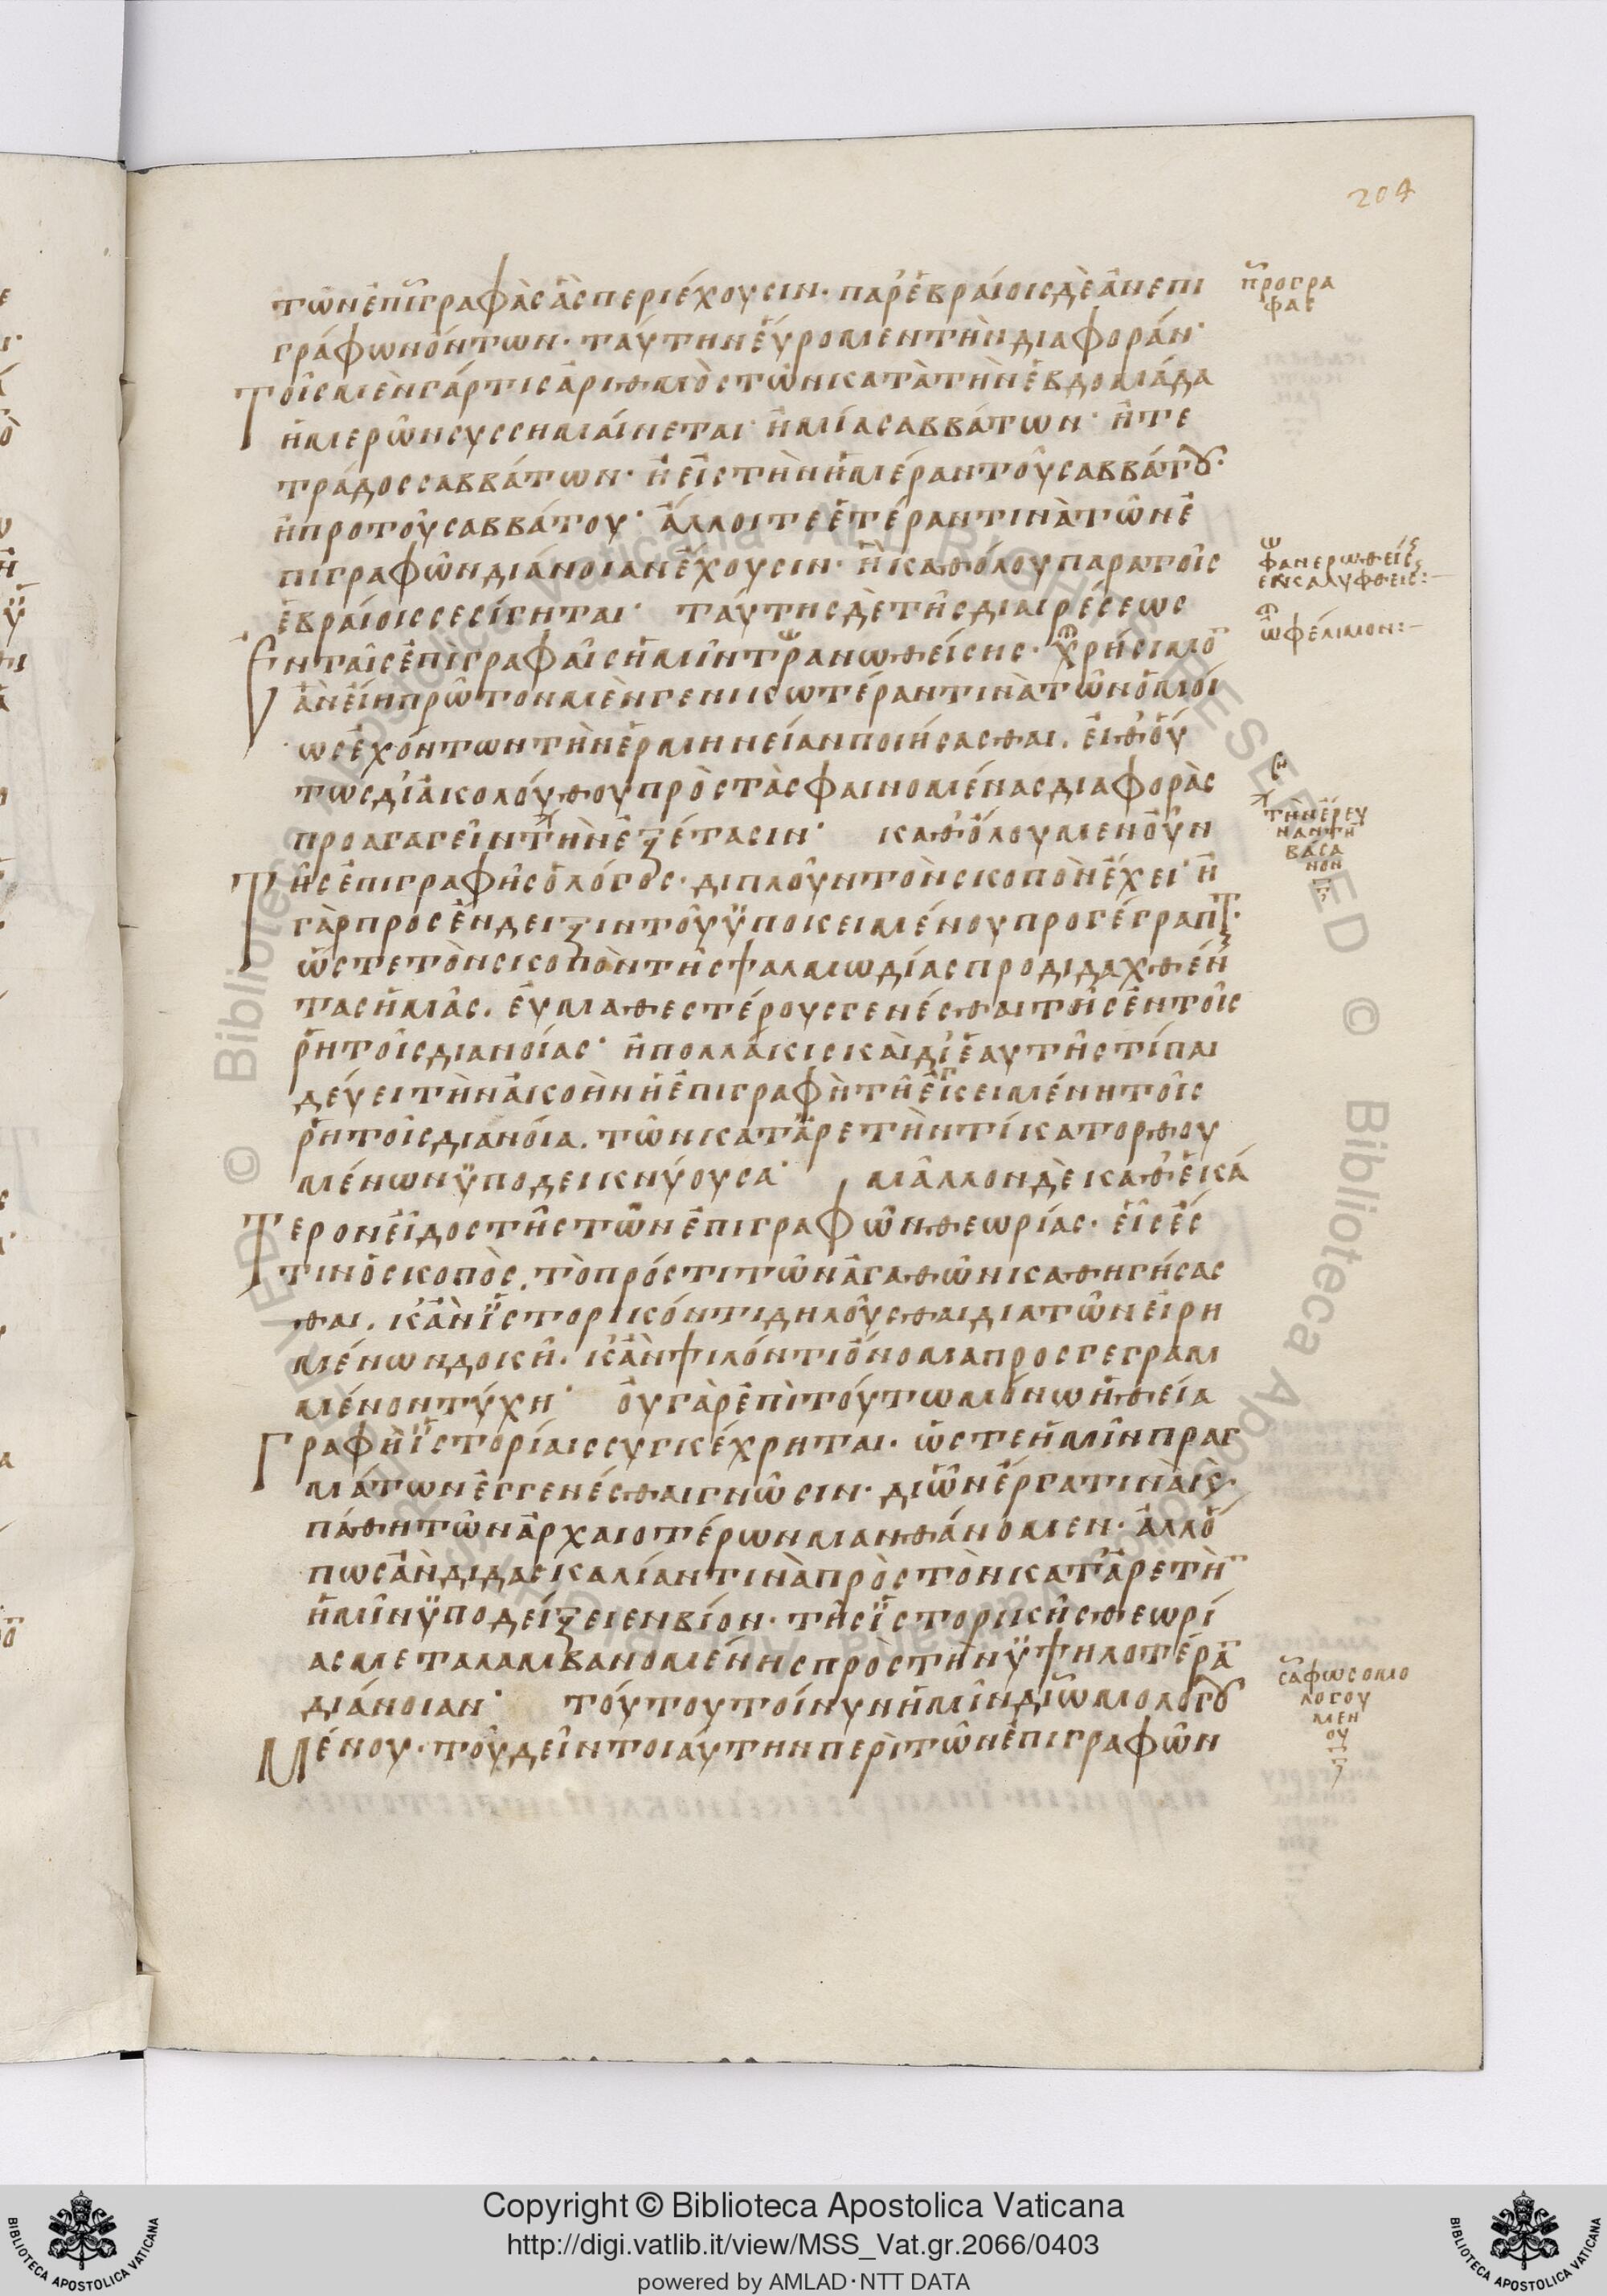 204
τῶν ἐπιγραφὰς ἃς περιέχουσιν· παρ' ἑβραίοις δὲ ἀνεπι
γράφων ὄντων· ταύτην εὕρομεν τὴν διαφοράν·
Τοῖς μὲν γάρ τις ἀριθμὸς τῶν κατὰ τὴν ἑβδομάδα
ἡμερῶν συσσημαίνεται· ἢ μίας σαββάτων· ἢ τε
τράδος σαββάτων· ἢ εἰς τὴν ἡμέραν τοῦ σαββάτου·
ἢ προτοῦ σαββάτου· ἄλλοι τε ἑτέραν τινὰ τῶν ἐ
πιγραφῶν διάνοιαν ἔχουσιν· ἣ καθόλου παρα τοῖς
ἑβραίοις σεσίγηται· ταύτης δὲ τῆς διαιρέσεως
Ἐν ταῖς ἐπιγραφαῖς ἡμῖν τρανωθείσης· χρήσιμο̅
ἂν εἴη πρῶτον μὲν γενικωτέραν τινὰ τῶν ὁμοί
ως ἐχόντων τὴν ἑρμηνείαν ποιήσασθαι. εἶθ' οὕ
τως δι' ἀκολούθου πρὸς τὰς φαινομένας διαφορὰς
προαγαγεῖν τὴν ἐξέτασιν· καθόλου μεν οὖν
Τῆς ἐπιγραφῆς ὁ λόγος· διπλοῦν τὸν σκοπὸν ἔχει· ἢ
γὰρ προς ἔνδειξιν τοῦ ὑποκειμένου προγέγραπτ·
ὥστε τὸν σκοπὸν τῆς ψαλμωδίας προδιδαχθέν
τας ἡμᾶς. εὐμαθεστέρους γενέσθαι τῆς ἐν τοῖς
ῥητοῖς διανοίας· ἢ πολλάκις καὶ δι' ἑαυτῆς τί παι
δεύει τὴν ἀκοὴν ἡ ἐπιγραφὴ τῇ ἐγκειμένη τοῖς
ῥητοῖς διανόια. τῶν κατ' ἀρετὴν τί κατορθου
μένων ὑποδεικνύουσα· μᾶλλον δὲ καθ' ἑκά
Τερον εἶδος τῆς τῶν ἐπιγραφῶν θεωρίας· εἷς ἐσ
τιν ὁ σκοπὸς. τὸ πρός τι τῶν ἀγαθῶν καθηγήσασ
θαι. κἂν ἱστορικόν τι δηλοῦσθαι δια τῶν εἰρη
μένων δοκῆ. κἂν ψιλόν τι ὄνομα προσγεγραμ
μένον τύχη· οὐ γὰρ ἐπὶ τούτω μόνω ἡ θεία
Γραφὴ ἱστορίαις συγκέχρηται· ὥστε ἡμῖν πραγ
μάτων ἐγγενέσθαι γνῶσιν· δι' ὧν ἔργα τινὰ κς
πάθη τῶν ἀρχαιοτέρων μανθάνομεν· ἀλλ' ὅ
πως ἂν διδασκαλίαν τινὰ πρὸς τὸν κατ' ἀρετὴ̅
ἡμῖν ὑποδείξειεν βίον· τῆς ἱστορικῆς θεωρί
ας μεταλαμβανομένης πρὸς τὴν ὑψηλοτέρα̅
διάνοιαν· τούτου τοίνυν ἡμῖν διωμολογου
Μένου· τοῦ δεῖν τοιαύτην περὶ τῶν ἐπιγραφῶν
προγρα
φας
φανερωθείς
ενκαλυφθεις:—
ὠφέλιμον:—
τὴν ἔρευ
ναν τη̅
βάσα
νον
σαφως ομο
λογου
μεν
ου
© Biblioteca Apostolica Vaticana ALL RIGHTS RESERVED
BIBLIOTECA APOSTOLICA VATICANA
Copyright © Biblioteca Apostolica Vaticana
http://digi.vatlib.it/view/MSS_Vat.gr.2066/0403
powered by AMLAD·NTT DATA
BIBLIOTECA APOSTOLICA VATICANA